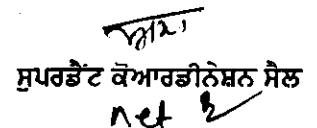 ਸੁਪਰਡੈਂਟ ਕੋਆਰਡੀਨੇਸ਼ਨ ਸੈਲ
net